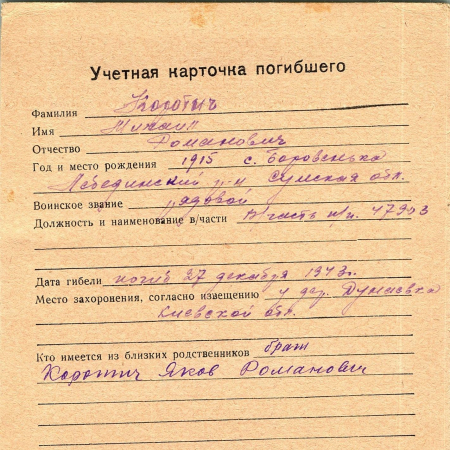 Учетная карточка погибшего
Фамилия Коротич
Имя Михаил
Отчество Романович
Год и место рождения 1915 с. Боровенька
Лебединский р-н Сумская обл.
Воинское звание рядовой
Должность и наименование в/части В/часть п/п. 47903
Дата гибели погиб 27 декабря 1943г.
Место захоронения, согласно извещению у дер. Дунаевка
Киевской обл.
Кто имеется из близких родственников брат
Коротич Яков Романович